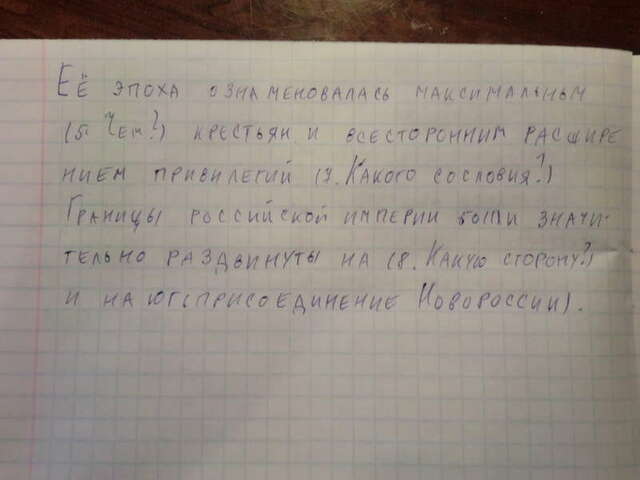 Её эпоха ознаменовалась максимальным
(5. Чем?) крестьян и всесторонним расшире
нием привилегий (7. Какого сословия?)
Границы российской империи были значи-
тельно раздвинуты на (8. Какую сторону?)
и на юг (присоединение Новороссии).